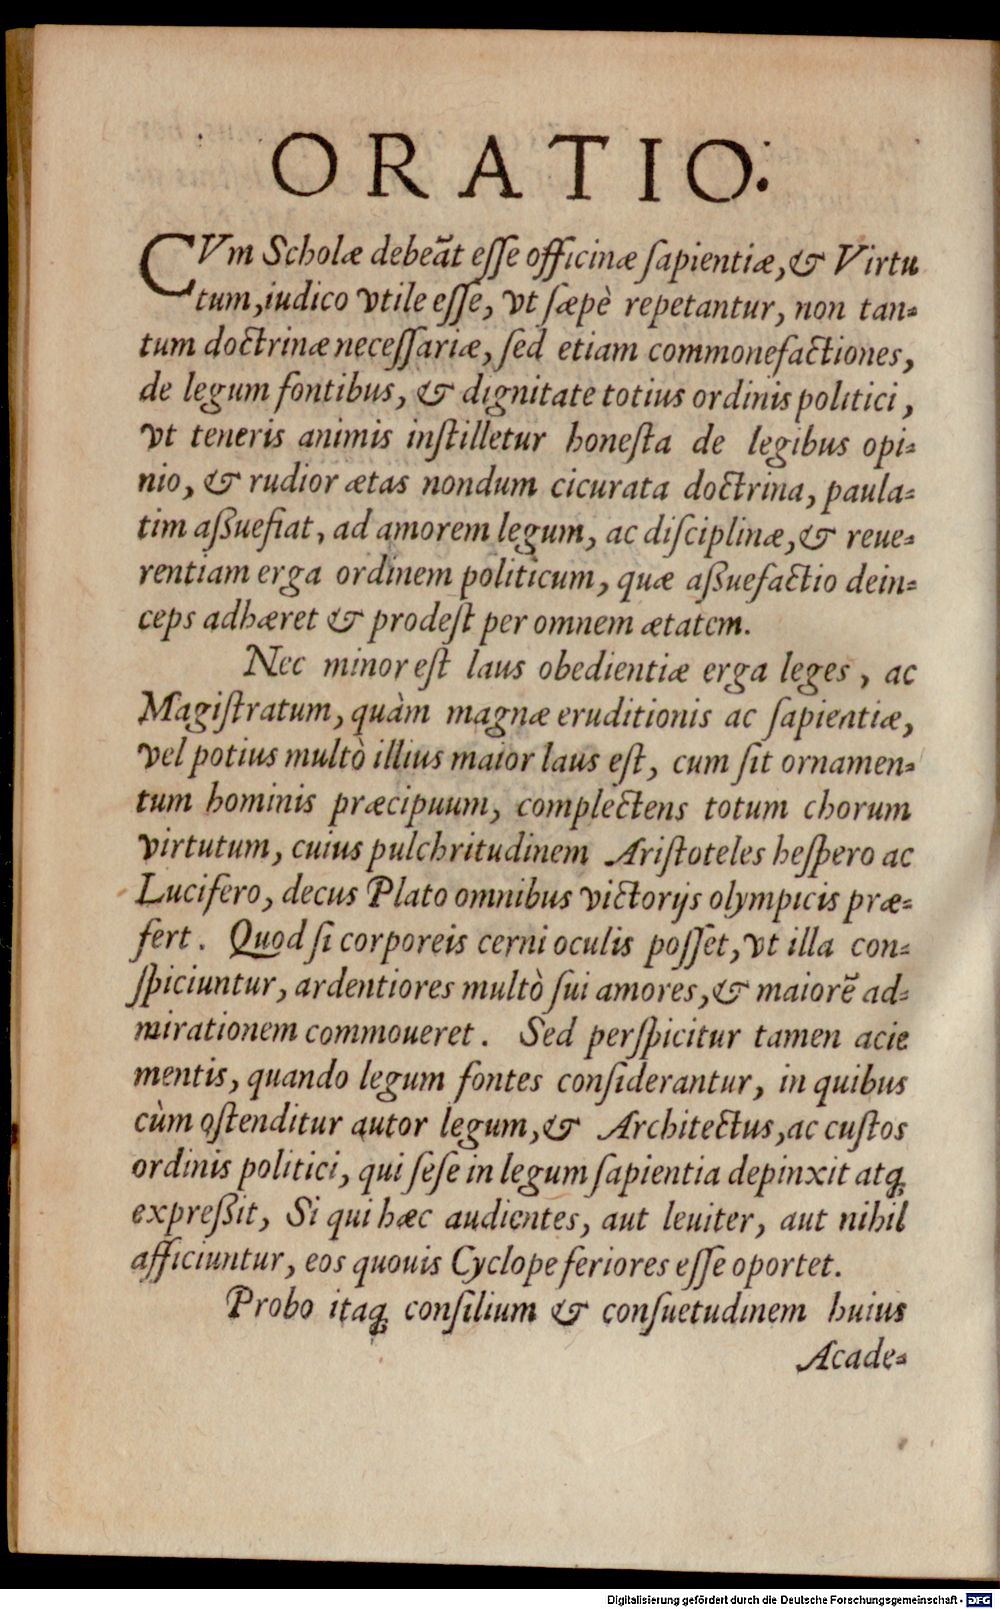 ORATIO.
CVm Scholæ debeãt eſſe officinæ ſapientiæ, & Virtu
tum, iudico vtile eſſe, vt ſæpè repetantur, non tan-
tum doctrinæ neceſſariæ, ſed etiam commonefactiones,
de legum fontibus, & dignitate totius ordinis politici,
vt teneris animis inſtilletur honeſta de legibus opi-
nio, & rudior ætas nondum cicurata doctrina, paula-
tim aßuefiat, ad amorem legum, ac diſciplinæ, & reue-
rentiam erga ordinem politicum, quæ aßuefactio dein-
ceps adhæret & prodeſt per omnem ætatem.
Nec minor eſt laus obedientiæ erga leges, ac
Magiſtratum, quàm magnæ eruditionis ac ſapientiæ,
vel potius multò illius maior laus eſt, cum ſit ornamen-
tum hominis præcipuum, complectens totum chorum
virtutum, cuius pulchritudinem Ariſtoteles heſpero ac
Lucifero, decus Plato omnibus victorijs olympicis præ-
fert. Quod ſi corporeis cerni oculis poſſet, vt illa con-
ſpiciuntur, ardentiores multò ſui amores, & maiorẽ ad-
mirationem commoueret. Sed perſpicitur tamen acie
mentis, quando legum fontes conſiderantur, in quibus
cùm oſtenditur autor legum, & Architectus, ac cuſtos
ordinis politici, qui ſeſe in legum ſapientia depinxit atq;
expreßit, Si qui hæc audientes, aut leuiter, aut nihil
afficiuntur, eos quouis Cyclope feriores eſſe oportet.
Probo itaq; conſilium & conſuetudinem huius
Acade-
Digitalisierung gefördert durch die Deutsche Forschungsgemeinschaft - DFG